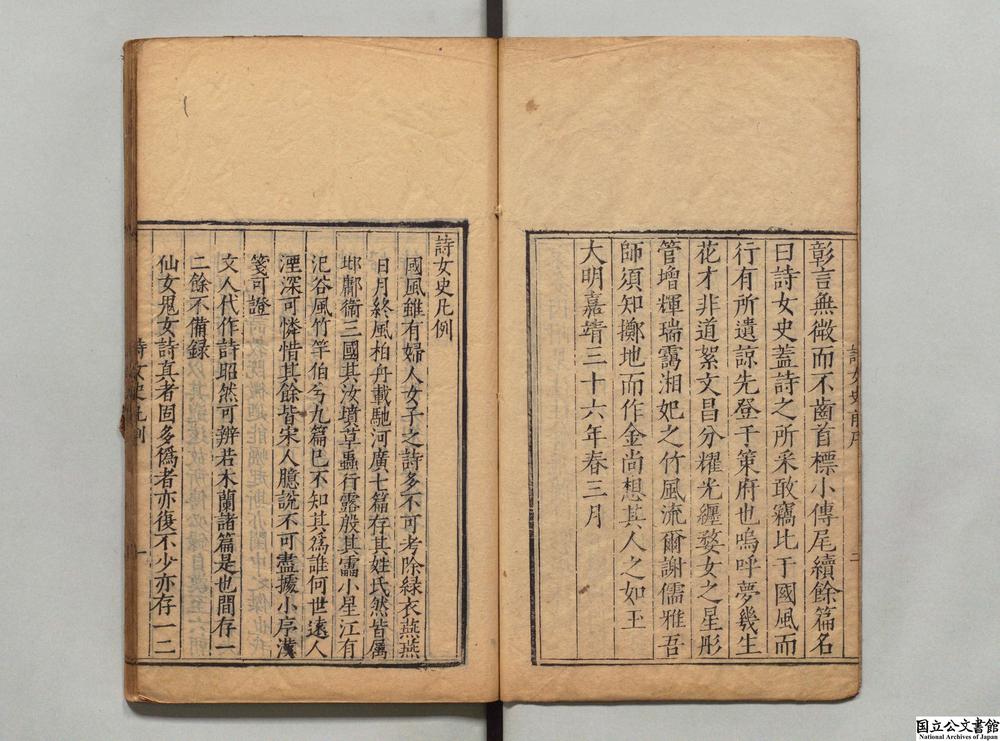 彰言無徵而不齒首標小傳尾續餘篇名
曰詩女史蓋詩之所采敢竊比于國風而
行有所遺諒先登于策府也嗚呼夢幾生
花才非道絮文昌分耀光纒婺女之星彤
管增輝瑞靄湘妃之竹風流爾謝儒雅吾
師須知擲地而作金尚想其人之如玉
大明嘉靖三十六年春三月
詩女史凡例
國風雖有婦人女子之詩多不可考除緑衣燕燕
日月終風柏舟載馳河廣七篇存其姓氏然皆屬
邶鄘衛三國其汝墳草蟲行露殷其靁小星江有
汜谷風竹竿伯兮九篇已不知其爲誰何世遠人
湮深可憐惜其餘皆宋人臆說不可盡據小序漢
箋可證
文人代作詩昭然可辨若木蘭諸篇是也間存一
二餘不備録
仙女鬼女詩真者固多僞者亦復不少亦存一二
詩女史凡例
一
国立公文書館
National Archives of Japan